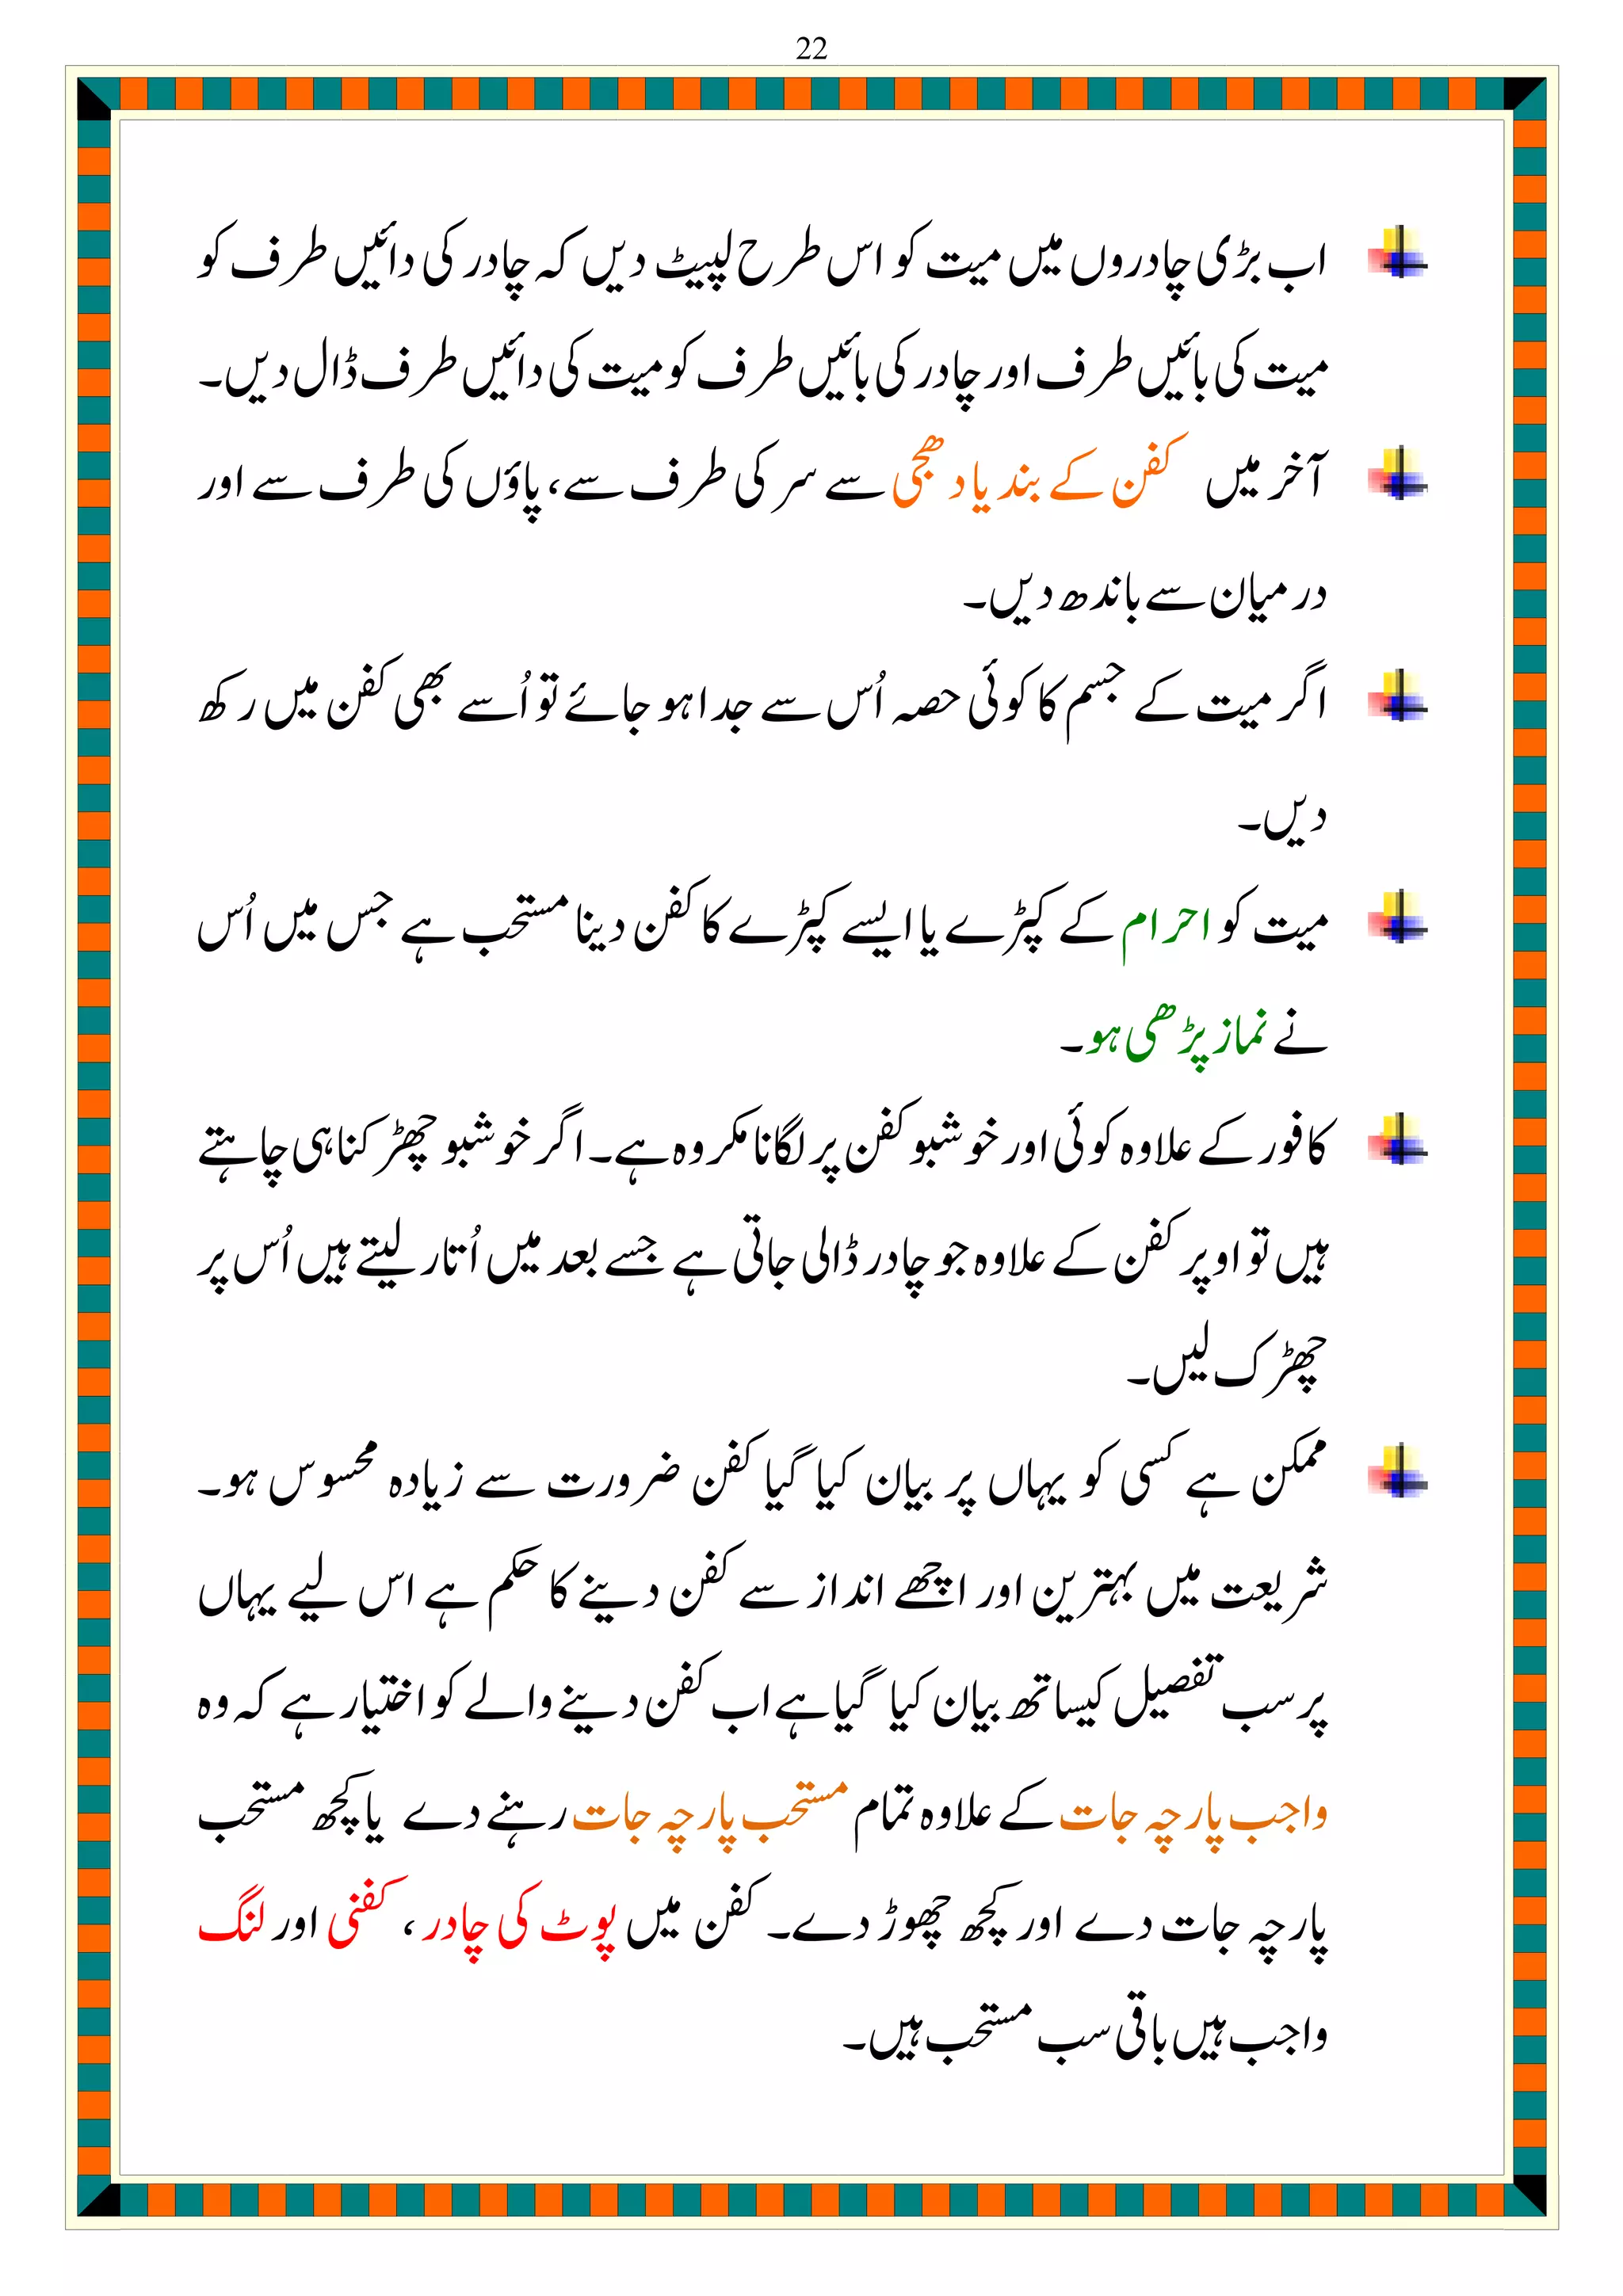 22
اب بڑی چادروں میں میت کو اس طرح لپیٹ دیں کہ چادر کی دائیں طرف کو
میت کی بائیں طرف اور چادر کی بائیں طرف کو میت کی دائیں طرف ڈال دیں۔
آخر میں کفن کے بند یا دھجی سے سر کی طرف سے، پاؤں کی طرف سے اور
درمیان سے باندھ دیں۔
اگر میت کے جسم کا کوئی حصہ اُس سے جدا ہو جائے تو اُسے بھی کفن میں رکھ
دیں۔
میت کو احرام کے کپڑے یا ایسے کپڑے کا کفن دینا مستحب ہے جس میں اُس
نے نماز پڑھی ہو۔
کافور کے علاوہ کوئی اور خوشبو کفن پر لگانا مکروہ ہے۔ اگر خوشبو چھڑکنا ہی چاہتے
ہیں تو اوپر کفن کے علاوہ جو چادر ڈالی جاتی ہے جسے بعد میں اُتار لیتے ہیں اُس پر
چھڑک لیں۔
ممکن ہے کسی کو یہاں پر بیان کیا گیا کفن ضرورت سے زیادہ محسوس ہو۔
شریعت میں بہترین اور اچھے انداز سے کفن دینے کا حکم ہے اس لیے یہاں
پر سب تفصیل کیساتھ بیان کیا گیا ہے اب کفن دینے والے کو اختیار ہے کہ وہ
واجب پارچہ جات کے علاوہ تمام مستحب پارچہ جات رہنے دے یا کچھ مستحب
پارچہ جات دے اور کچھ چھوڑ دے۔ کفن میں پوٹ کی چادر، کفنی اور لنگ
واجب ہیں باقی سب مستحب ہیں۔